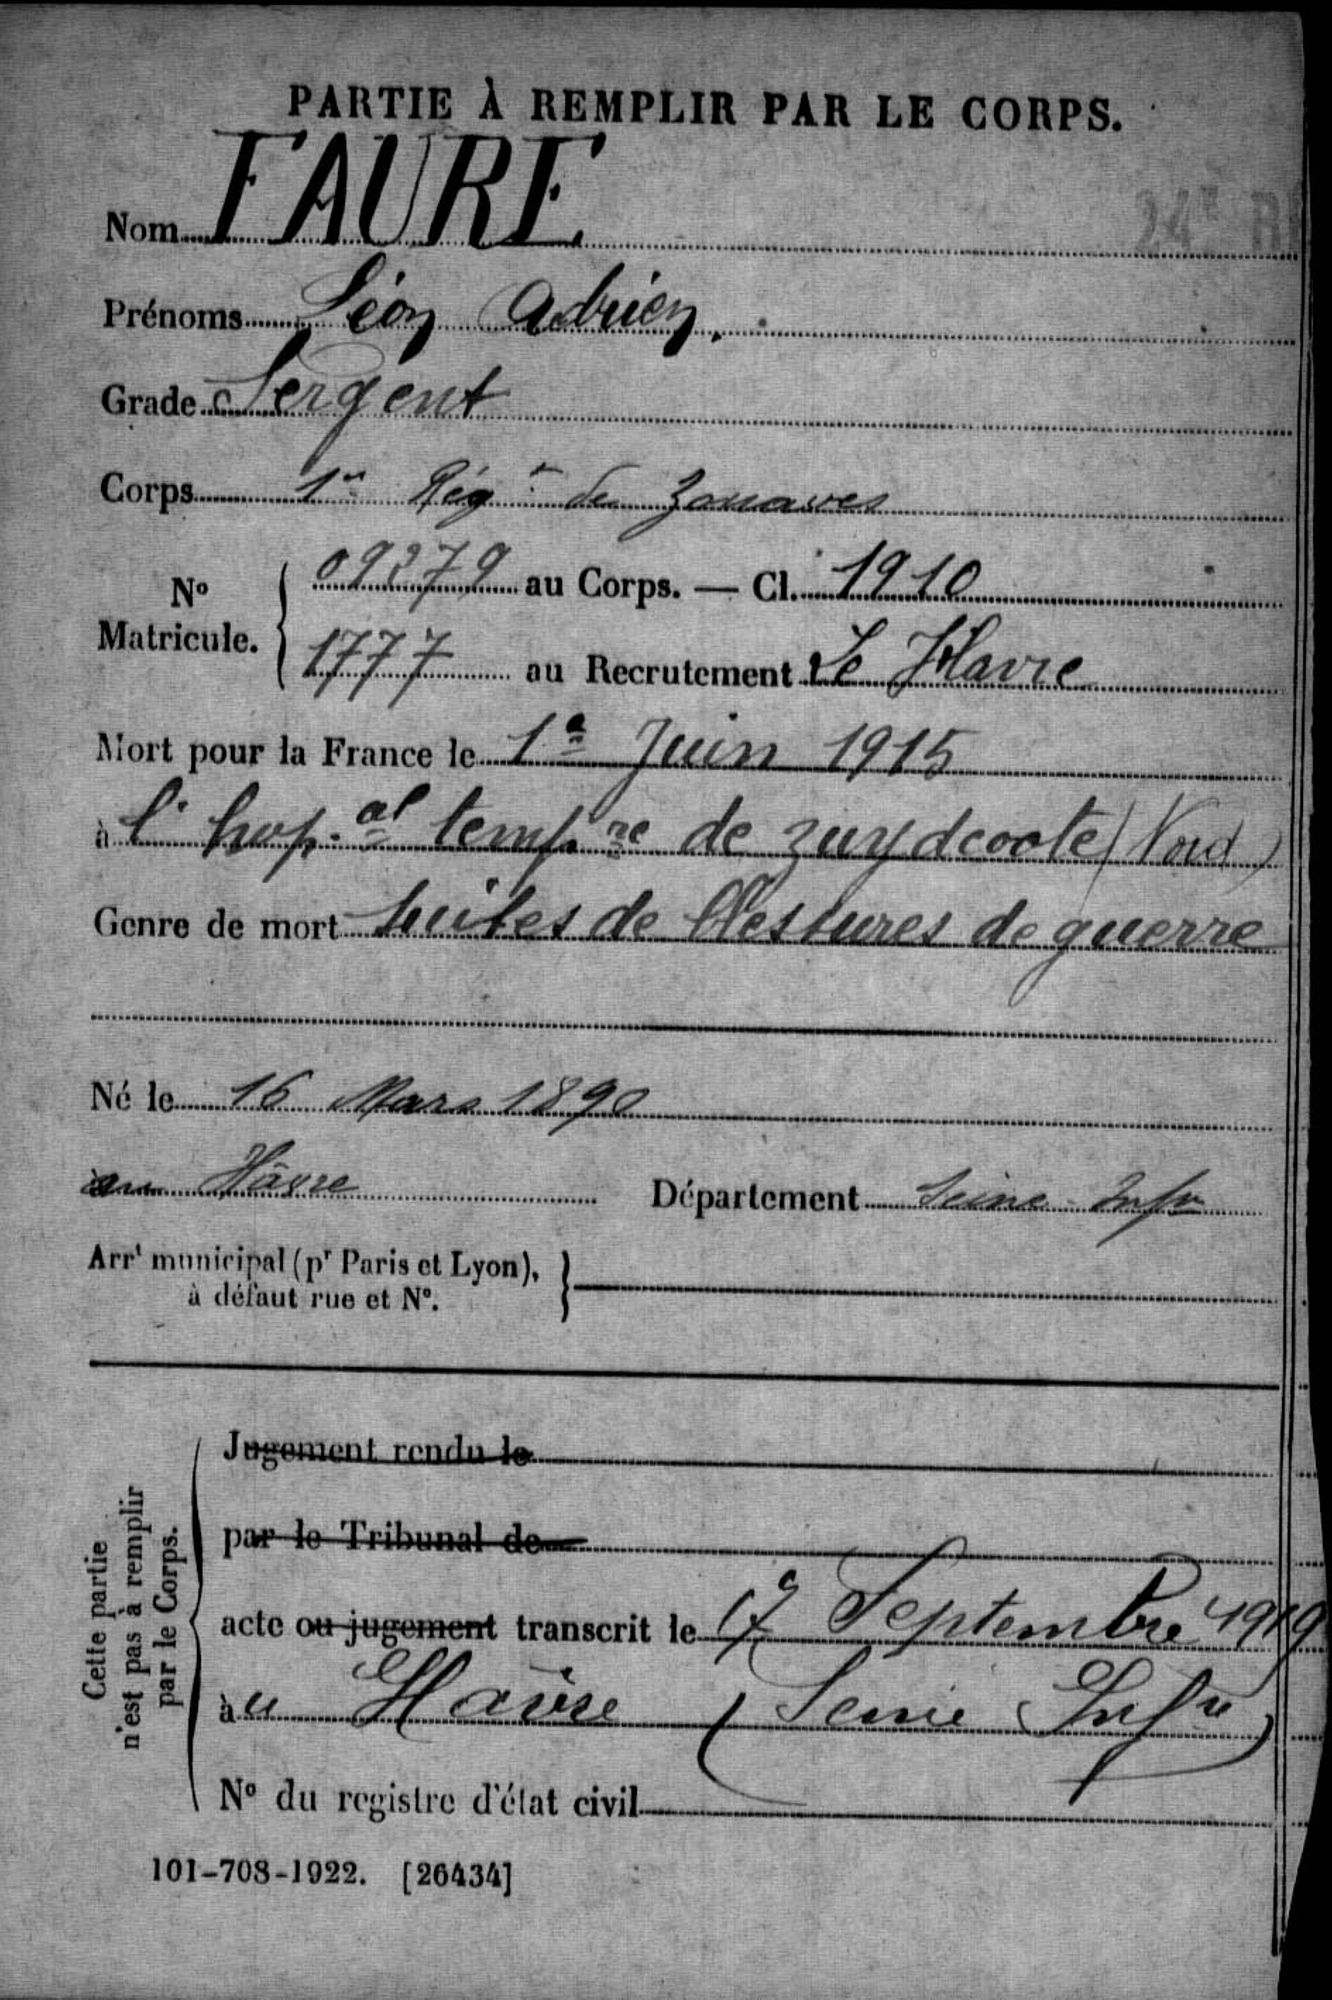 PARTIE À REMPLIR PAR LE CORPS.
24e R
Nom FAURE
Prénoms Léon Adrien.
Grade Sergent
Corps 1er Régt de Zouaves
No Matricule. 09279 au Corps. — Cl. 1910
1777 au Recrutement Le Havre
Mort pour la France le 1er Juin 1915
à l'hop.al tempre de Zuydcoote (Nord)
Genre de mort Suites de blessures de guerre
Né le 16 Mars 1890
au Hâvre Département Seine-Infre
Arrt municipal (pr Paris et Lyon),
à défaut rue et No.
Cette partie
n'est pas à remplir
par le Corps.
Jugement rendu le
par le Tribunal de
acte ou jugement transcrit le 17 Septembre 1919
àu Hâvre (Seine Infre)
No du registre d'état civil
101-708-1922. [26434]